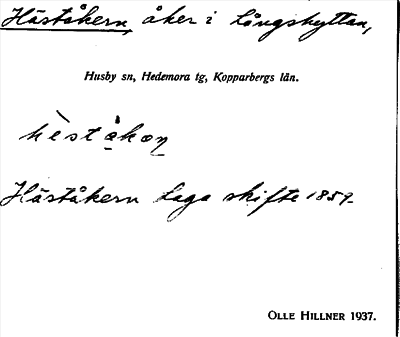 Häståkern, åker i Långshyttan,
Husby sn, Hedemora tg, Kopparbergs län.
hèståkon
Häståkern Laga skifte 1859
OLLE HILLNER 1937.